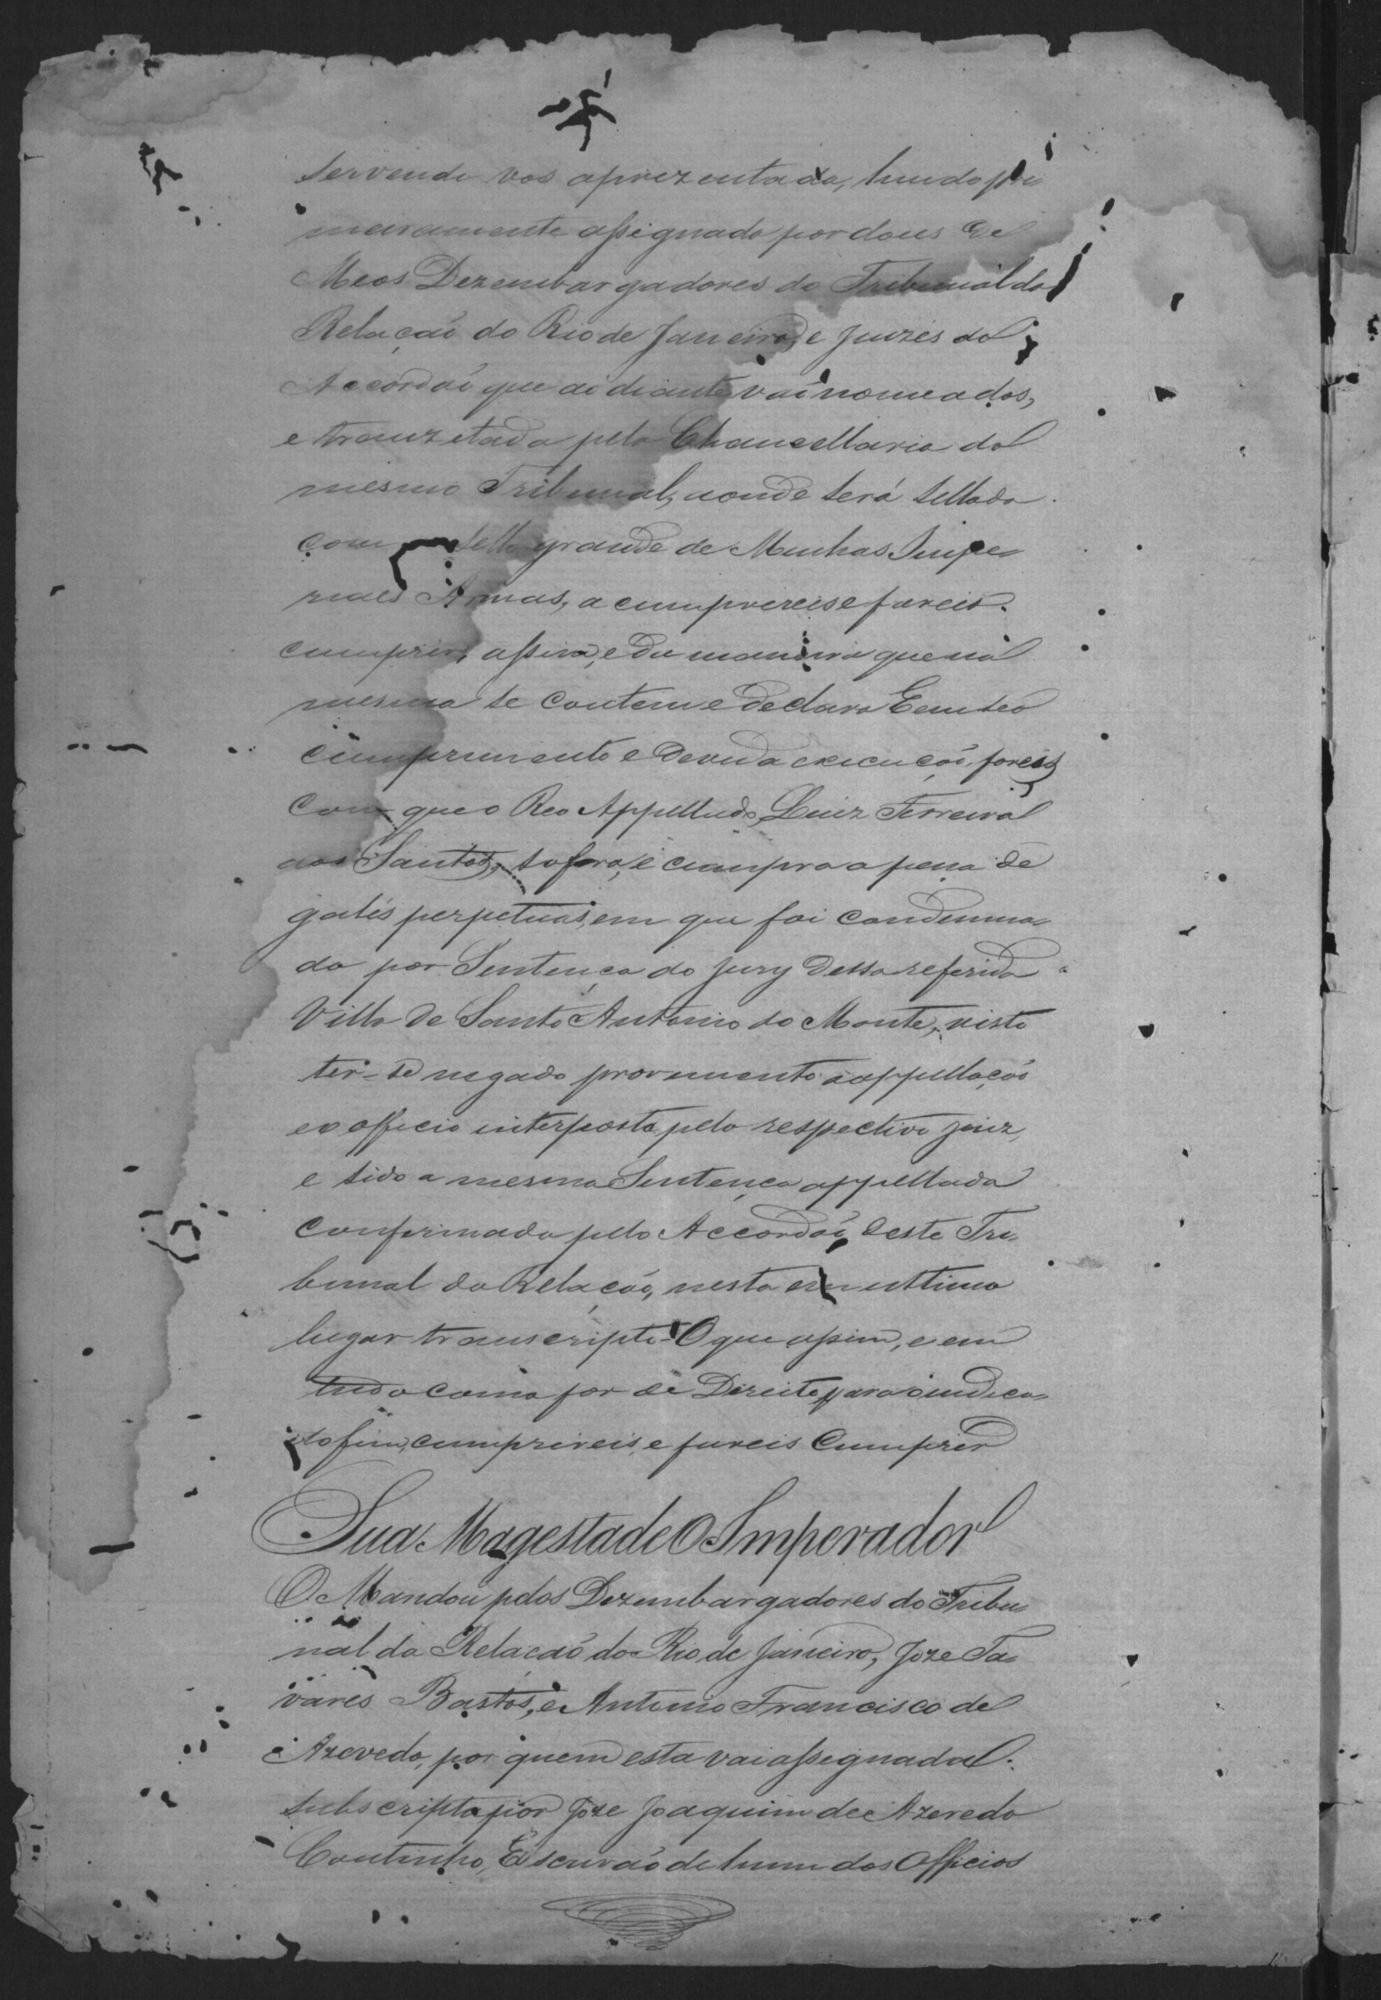 servendo vos aprezentada, hindo pri
meiramente assignada por dous de
Meos Dezembargadores do Tribunal da
Relação do Rio de Janeiro, e Juizes do
Accordaõ que ao diante vaõ nomeados,
e tranzitada pela Chancellaria do
mesmo Tribunal, aonde será sellada
com sello grande de Minhas Impe
riaes Armas, a cumprireis e fareis
cumprir, assim, e da maneira que na
mesma se contem e declara E em seo
cumprimento e devida execuçaõ, fareis
com que o Reo Appellado, Luiz Ferreira
dos Santos, sofra, e cumpra a pena de
galés perpetuas, em que foi condemna
do por Sentença do Jury dessa referida
Villa de Santo Antonio do Monte, visto
ter-se negado provimento a appellaçaõ
ex officio interposta pelo respectivo juiz,
e sido a mesma Sentença appellada
confirmada pelo Accordaõ deste Tri
bunal da Relaçaõ, nesta em ultimo
lugar transcripto - O que assim, e em
tudo como for de Direito, para o indica
do fim, cumprireis, e fareis Cumprir
Sua Magestade O Imperador
O Mandou pelos Dezembargadores do Tribu
nal da Relaçaõ do Rio de Janeiro, Joze Ta
vares Bastos, e Antonio Francisco de
Azevedo, por quem esta vai assignada.
subscripta por Joze Joaquim de Azeredo
Coutinho, Escrivaõ de hum dos Officios